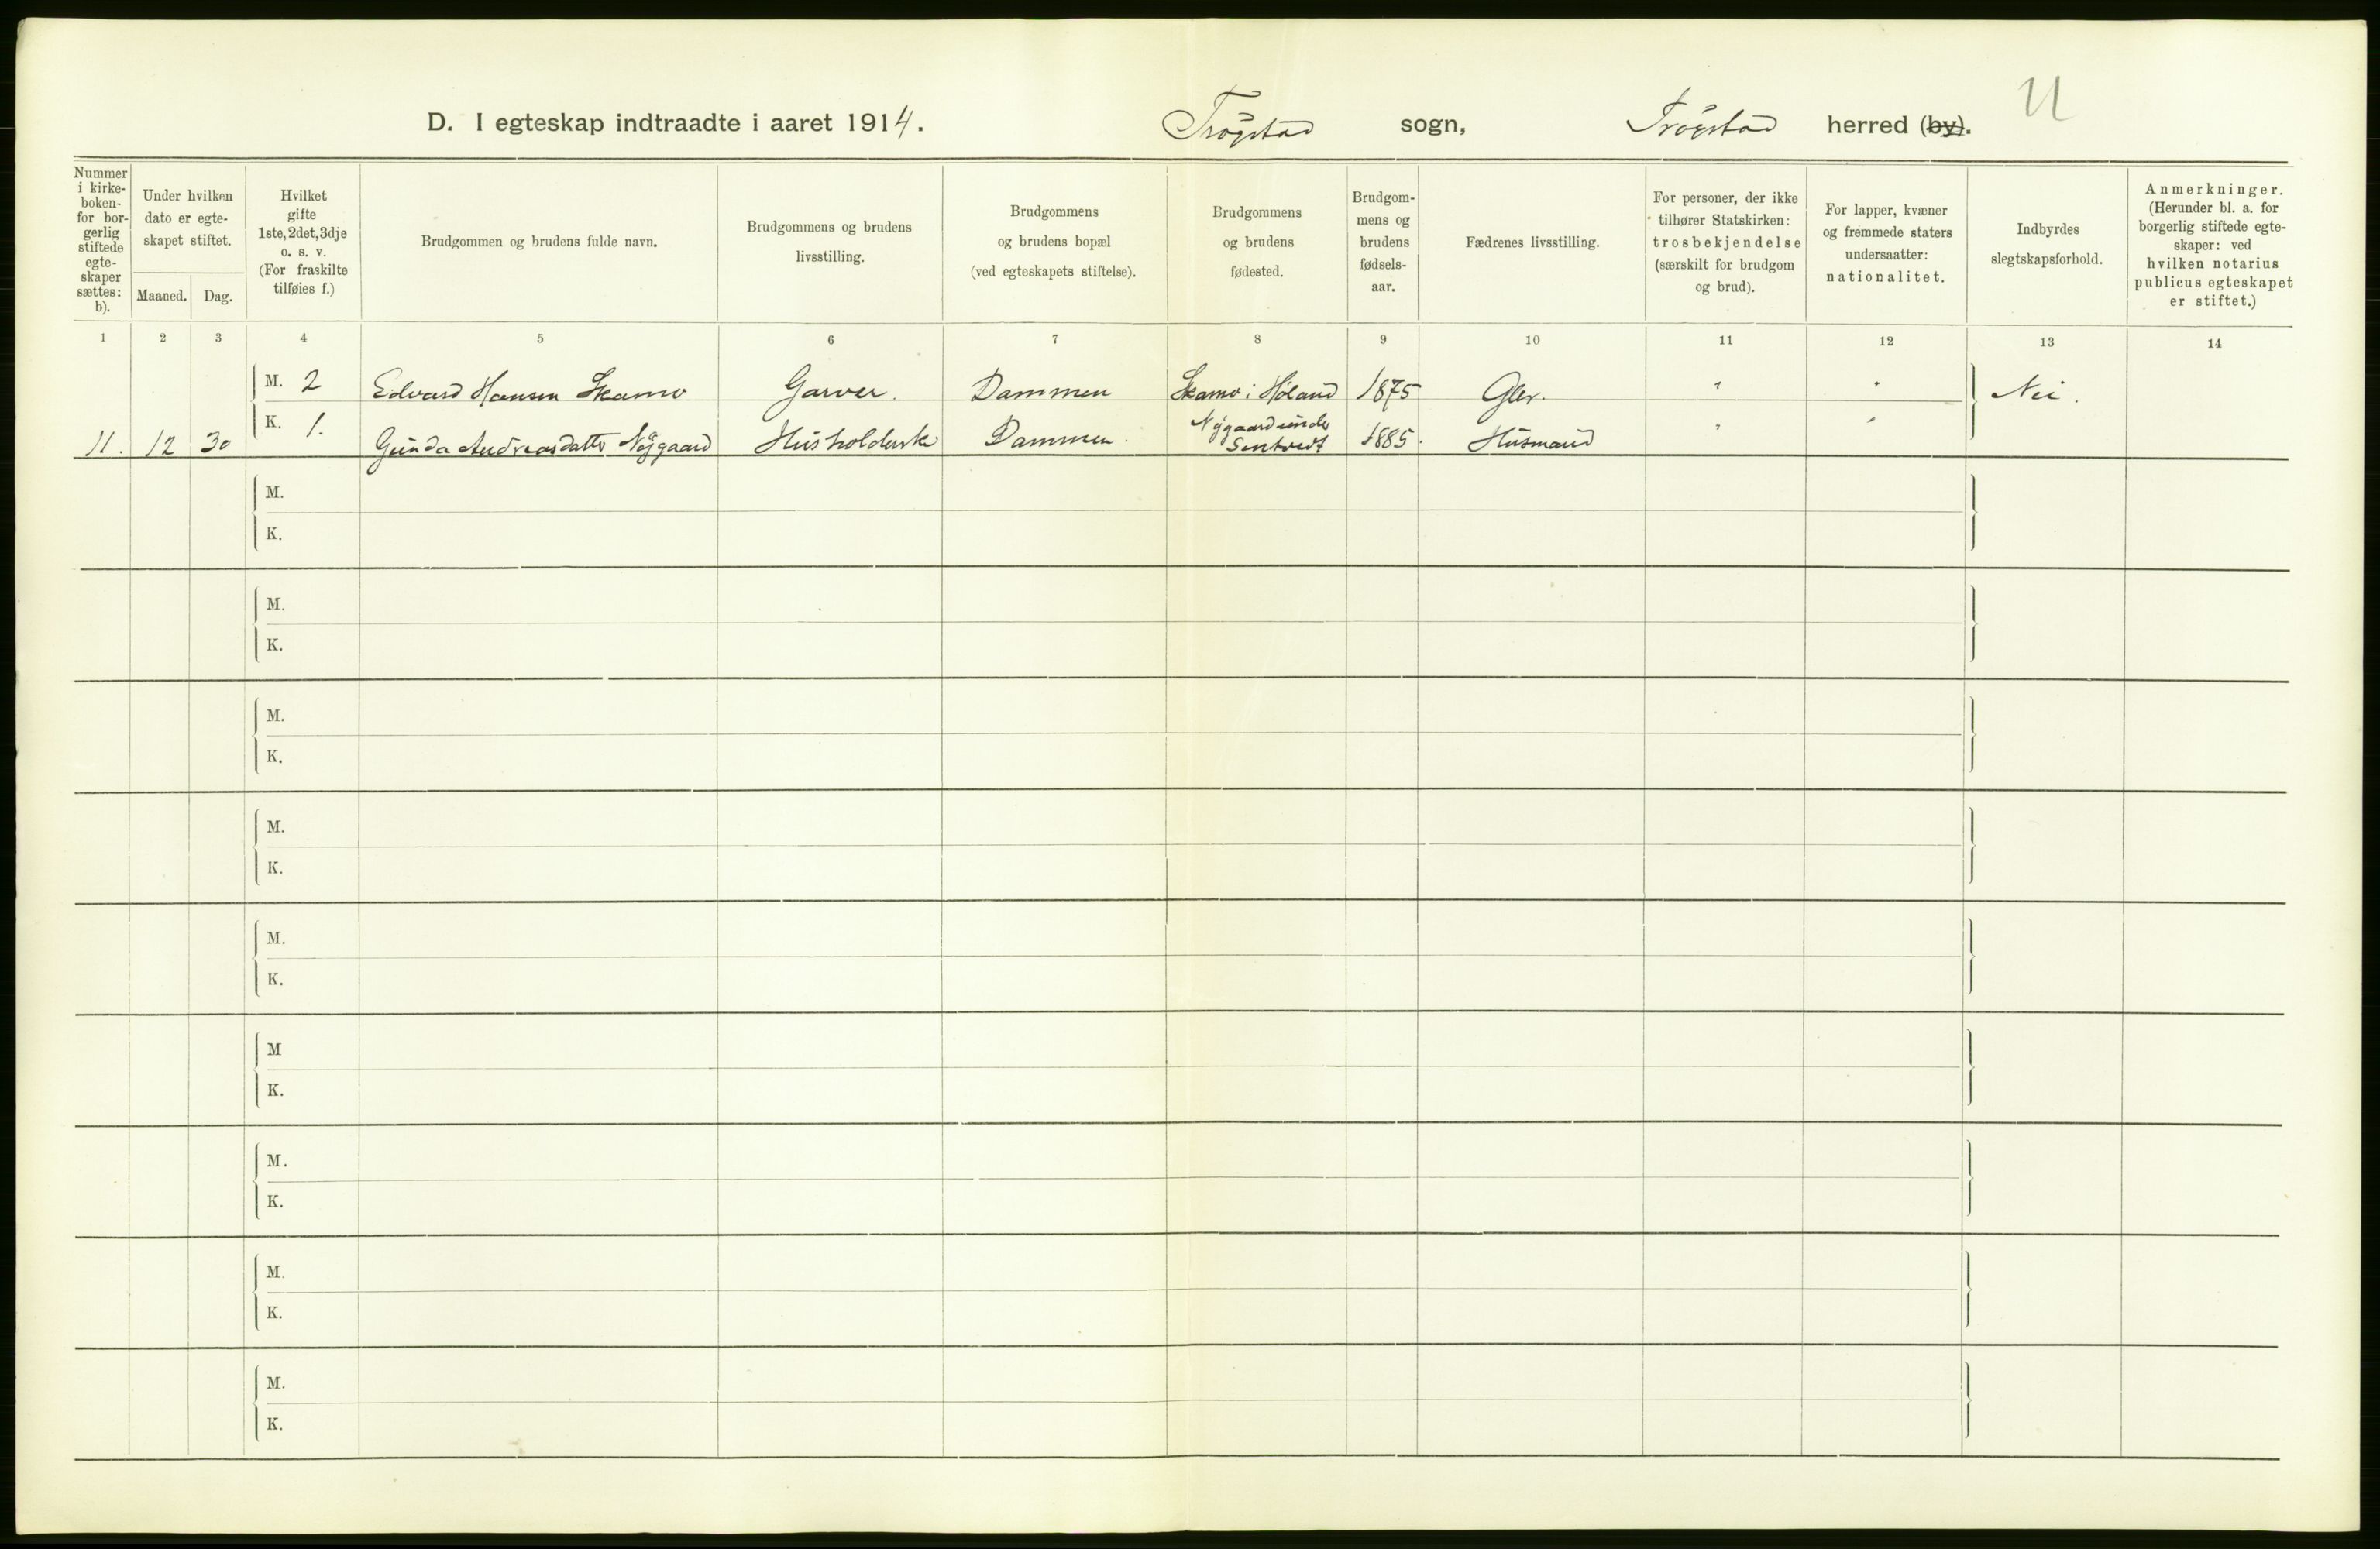 D. I egteskap indtraadte i aaret 1914. Trögstad sogn, Trögstad herred (by). 11
Nummer i kirkeboken- for borgerlig stiftede egteskaper sættes: b).
Under hvilken dato er egteskapet stiftet.
Maaned. Dag.
Hvilket gifte 1ste, 2det, 3dje o. s. v. (For fraskilte tilføies f.)
Brudgommen og brudens fulde navn.
Brudgommens og brudens livsstilling.
Brudgommens og brudens bopæl (ved egteskapets stiftelse).
Brudgommens og brudens fødested.
Brudgommens og brudens fødselsaar.
Fædrenes livsstilling.
For personer, der ikke tilhører Statskirken: trosbekjendelse (særskilt for brudgom og brud).
For lapper, kvæner og fremmede staters undersaatter: nationalitet.
Indbyrdes slegtskapsforhold.
Anmerkninger. (Herunder bl. a. for borgerlig stiftede egteskaper: ved hvilken notarius publicus egteskapet er stiftet.)
1 2 3 4 5 6 7 8 9 10 11 12 13 14
M. 2 Edvard Hansen Skamo Garver. Dammen Skamo i Höland 1875 Gbr. " " Nei.
11. 12 30 K. 1. Gunda Andreasdatter Nÿgaard Husholderske Dammen. Nÿgaard under 1885. Husmand " "
M.
K.
M.
K.
M.
K.
M.
K.
M.
K.
M
K.
M.
K.
M.
K.
M.
K.